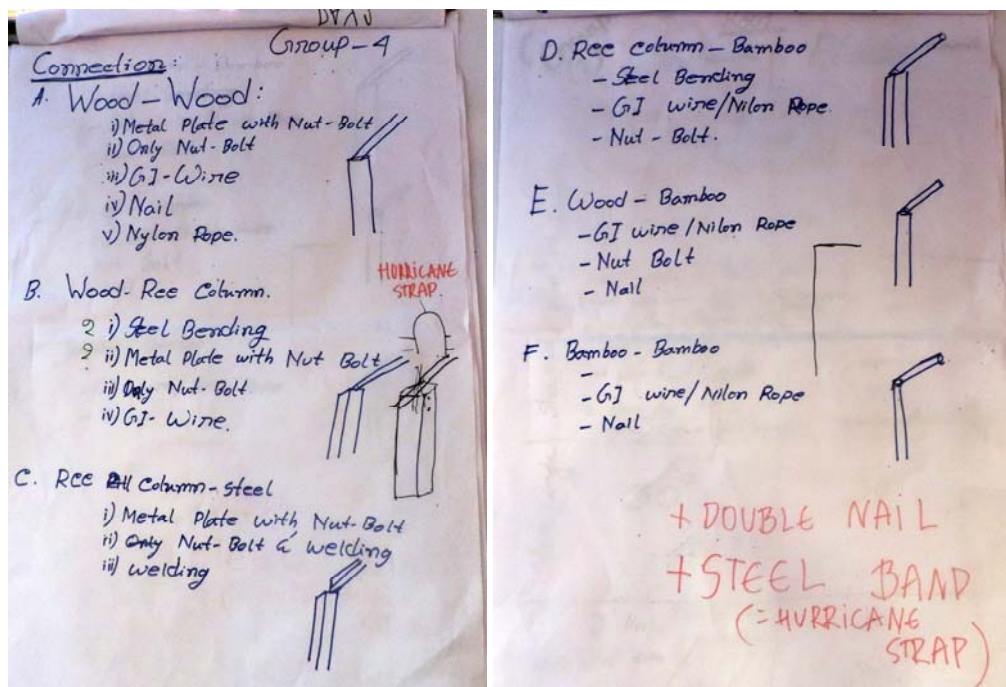 Group-4
Connection:
A. Wood-Wood:
i) Metal Plate with Nut-Bolt
ii) Only Nut-Bolt
iii) GI-Wire
iv) Nail
v) Nylon Rope.
HURRICANE
STRAP.
B. Wood-Rcc Column.
i) Steel Bending
ii) Metal Plate with Nut Bolt
iii) Only Nut-Bolt
iv) GI-Wire.
C. Rcc Column-Steel
i) Metal Plate with Nut-Bolt
ii) Only Nut-Bolt & welding
iii) welding
D. Rcc column-Bamboo
- Steel Bending
- GI wire/Nilon Rope.
- Nut-Bolt.
E. Wood-Bamboo
- GI wire/Nilon Rope
- Nut Bolt
- Nail
F. Bamboo-Bamboo
-
- GI wire/Nilon Rope
- Nail
+ DOUBLE NAIL
+ STEEL BAND
(= HURRICANE
STRAP)